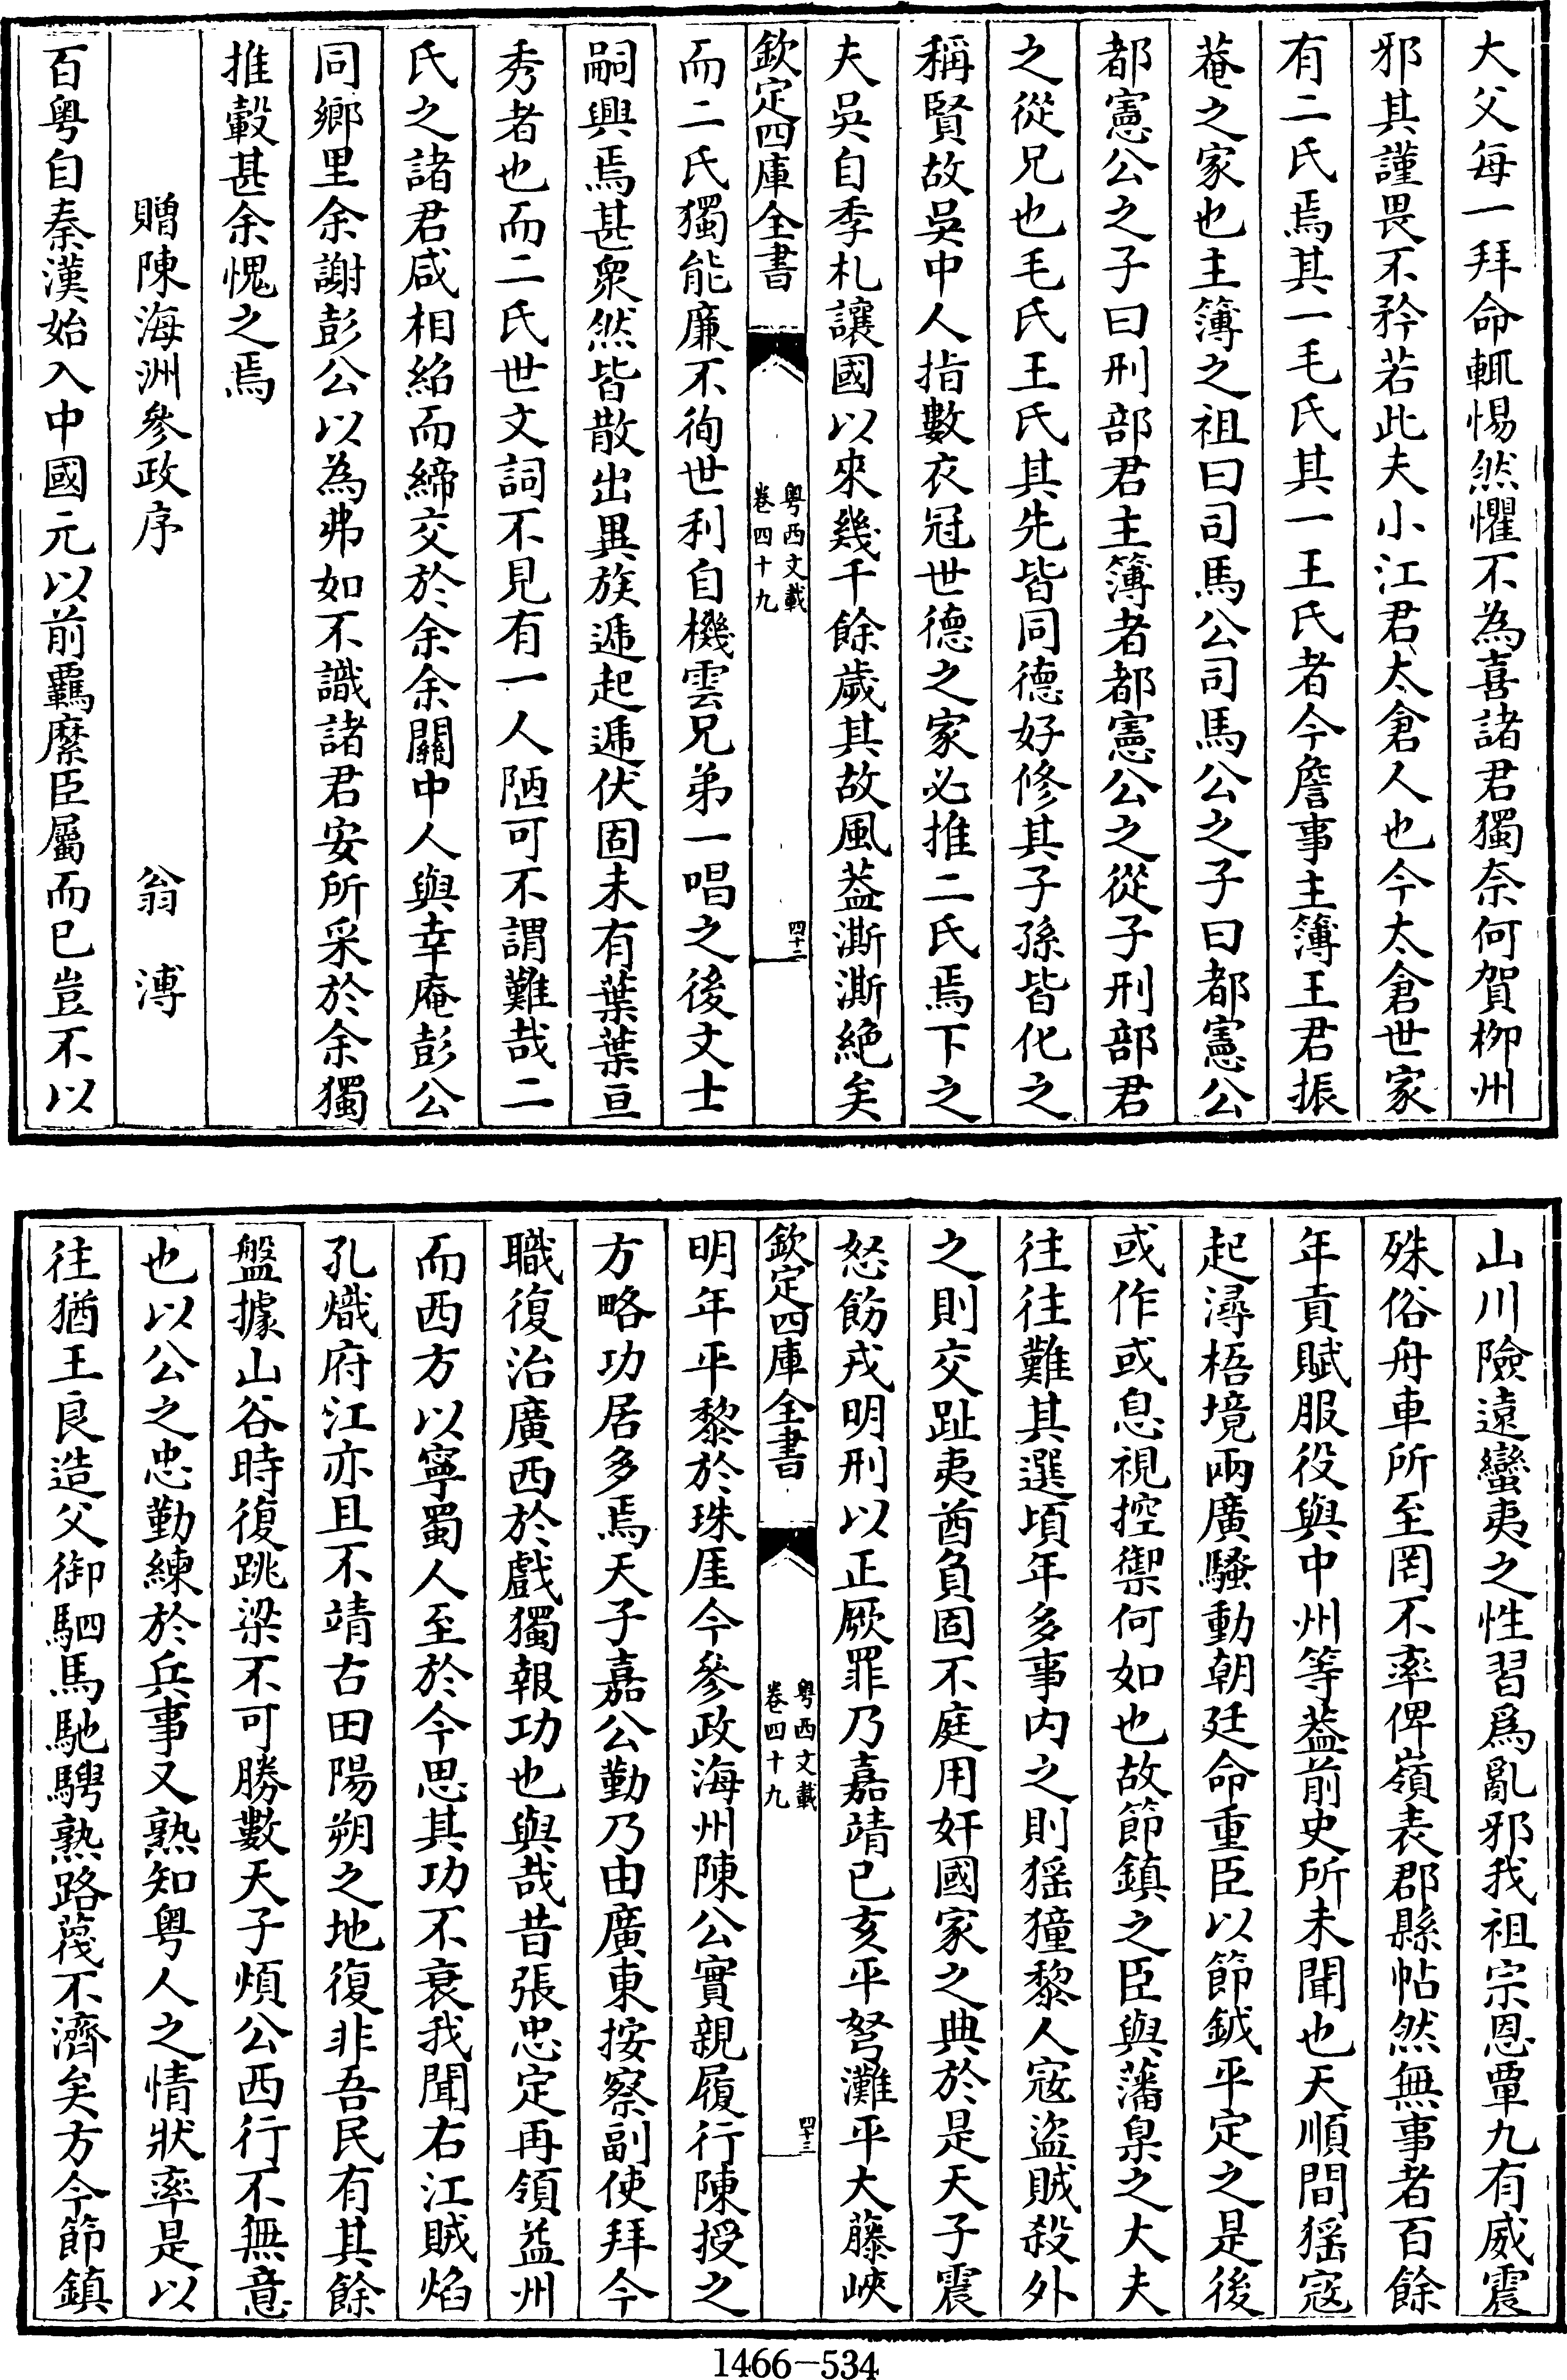 大父每一拜命輒惕然懼不為喜諸君獨奈何賀栁州
邪其謹畏不矜若此夫小江君太倉人也今太倉世家
有二氏焉其一毛氏其一王氏者今詹事主簿王君振
菴之家也主簿之祖曰司馬公司馬公之子曰都憲公
都憲公之子曰刑部君主簿者都憲公之從子刑部君
之從兄也毛氏王氏其先皆同德好修其子孫皆化之
稱賢故吳中人指數衣冠世德之家必推二氏焉下之
夫吳自季札讓國以來幾千餘歲其故風葢澌澌絶矣
欽定四庫全書
粤西文載
卷四十九
四十二
而二氏獨能廉不徇世利自機雲兄弟一唱之後文士
嗣興焉甚衆然皆散出異族遞起遞伏固未有葉葉亘
秀者也而二氏世文詞不見有一人陋可不謂難哉二
氏之諸君咸相紿而締交於余余關中人與幸庵彭公
同鄉里余謝彭公以為弗如不識諸君安所采於余獨
推轂甚余愧之焉
贈陳海洲參政序
翁溥
百粤自秦漢始入中國元以前羈縻臣屬而已豈不以
山川險遠蠻夷之性習爲亂邪我祖宗恩覃九有威震
殊俗舟車所至罔不率俾嶺表郡縣帖然無事者百餘
年貢賦服役與中州等葢前史所未聞也天順間猺寇
起潯梧境兩廣騷動朝廷命重臣以節鉞平定之是後
或作或息視控禦何如也故節鎮之臣與藩臬之大夫
往往難其選頃年多事内之則猺獞黎人寇盜賊殺外
之則交趾夷酋負固不庭用奸國家之典於是天子震
怒飭戎明刑以正厥罪乃嘉靖已亥平弩灘平大藤峽
欽定四庫全書
粤西文載
卷四十九
四十三
明年平黎於珠厓今參政海州陳公實親履行陳授之
方略功居多焉天子嘉公勤乃由廣東按察副使拜今
職復治廣西於戲獨報功也與哉昔張忠定再領益州
而西方以寧蜀人至於今思其功不衰我聞右江賊焰
孔熾府江亦且不靖古田陽朔之地復非吾民有其餘
盤據山谷時復跳梁不可勝數天子煩公西行不無意
也以公之忠勤練於兵事又熟知粤人之情狀率是以
往猶王良造父御駟馬馳騁熟路蔑不濟矣方今節鎮
1466—534